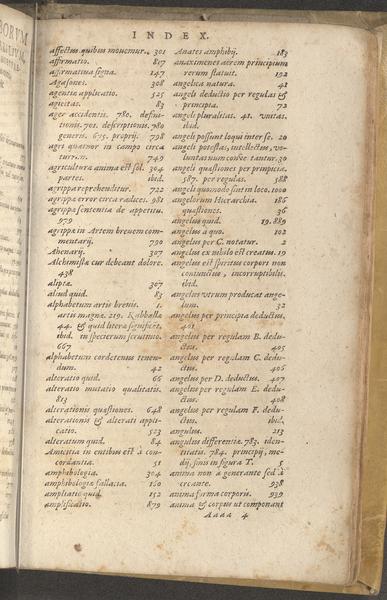 INDEX.
affectus quibus moventur. 301
affirmatio. 817
affirmativa signa. 147
Agasones. 308
agentia applicatio. 525
agilitas. 83
ager accidentis. 780. defini-
tionis. 701. descriptionis. 780
generis. 675. proprij. 798
agri quatuor in campo circa
749
agricultura anima est sol. 304
partes. ibid.
agrippa reprehenditur. 722
agrippa error circa radices. 981
agrippa sententia de appetitu.
979
agrippa in Artem brevem com-
mentarij. 790
Ahenarij. 307
Alchimistæ cur debeant dolore.
438
aliptæ. 307
aliud quid. 83
alphabetum artis brevis. 1.
artis magnæ. 219. Kabbalæ
44. & quid litera significet.
ibid. in specierum scrutinio.
667
alphabetum cordetenus tenen-
dum. 42
alteratio quid. 66
alteratio mutatio qualitatis.
813
alterationis quæstiones. 648
alterationis & alterati appli-
catio. 523
alteratum quid. 84
Amicitia in entibus est à con-
cordantia. 51
amphibologia. 304
amphibologiæ fallacia. 160
ampliatio quid. 152
amplificatio. 879
Anates amphibij. 183
anaximenes aerem principium
rerum statuit. 192
angelica natura. 41
angeli deductio per regulas &
principia. 72
angeli pluralitas. 41. unitas.
ibid.
angeli possunt loqui inter se. 20
angeli potestas, intellectus, vo-
luntas num conve tantur. 30
angeli quæstiones per principia.
587. per regulas. 588
angeli quomodo sint in loco. 1000
angelorum Hierarchia. 186
quæstiones. 36
angelus quid. 19. 889
angelus à quo. 102
angelus per C. notatur. 2
angelus ex nihilo est creatus. 19
angelus est spiritus corpori non
coniunctus, incorruptibilis.
ibid.
angelus utrum producat ange-
lum. 32
angelus per principia deductus.
401
angelus per regulam B. dedu-
ctus. 405
angelus per regulam C. dedu-
ctus. 406
angelus per D. deductus. 407
angelus per regulam E. dedu-
ctus. 408
angelus per regulam F. dedu-
ctus. ibid.
angulus. 213
angulus differentiæ. 783. iden-
titatis. 784. principij, me-
dij, finis in figura T.
anima non à generante sed à
creante. 938
anima forma corporis. 939
anima & corpus ut componant
Aaaa 4